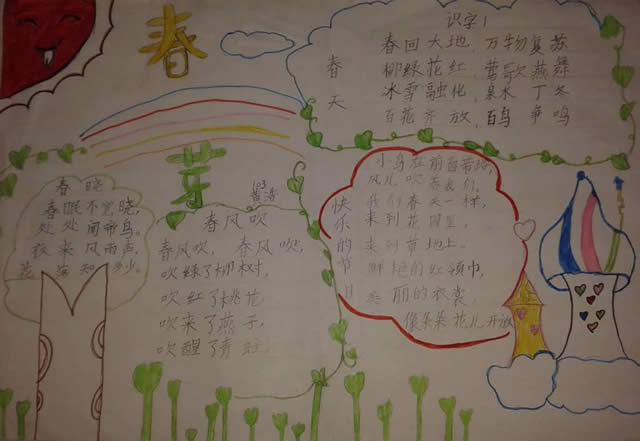 春
芽
识字1
春天
春回大地,万物复苏
柳绿花红,莺歌燕舞
冰雪融化,泉水丁冬
百花齐放,百鸟争鸣
春晓
春眠不觉晓,
处处闻啼鸟。
夜来风雨声,
花落知多少。
春风吹
春风吹,春风吹,
吹绿了柳树,
吹红了桃花
吹来了燕子,
吹醒了青蛙
快乐的节日
小鸟在前面带路,
风儿吹着我们,
我们春天一样,
来到花园里,
来到草地上。
鲜艳的红领巾,
美丽的衣裳,
像朵朵花儿开放